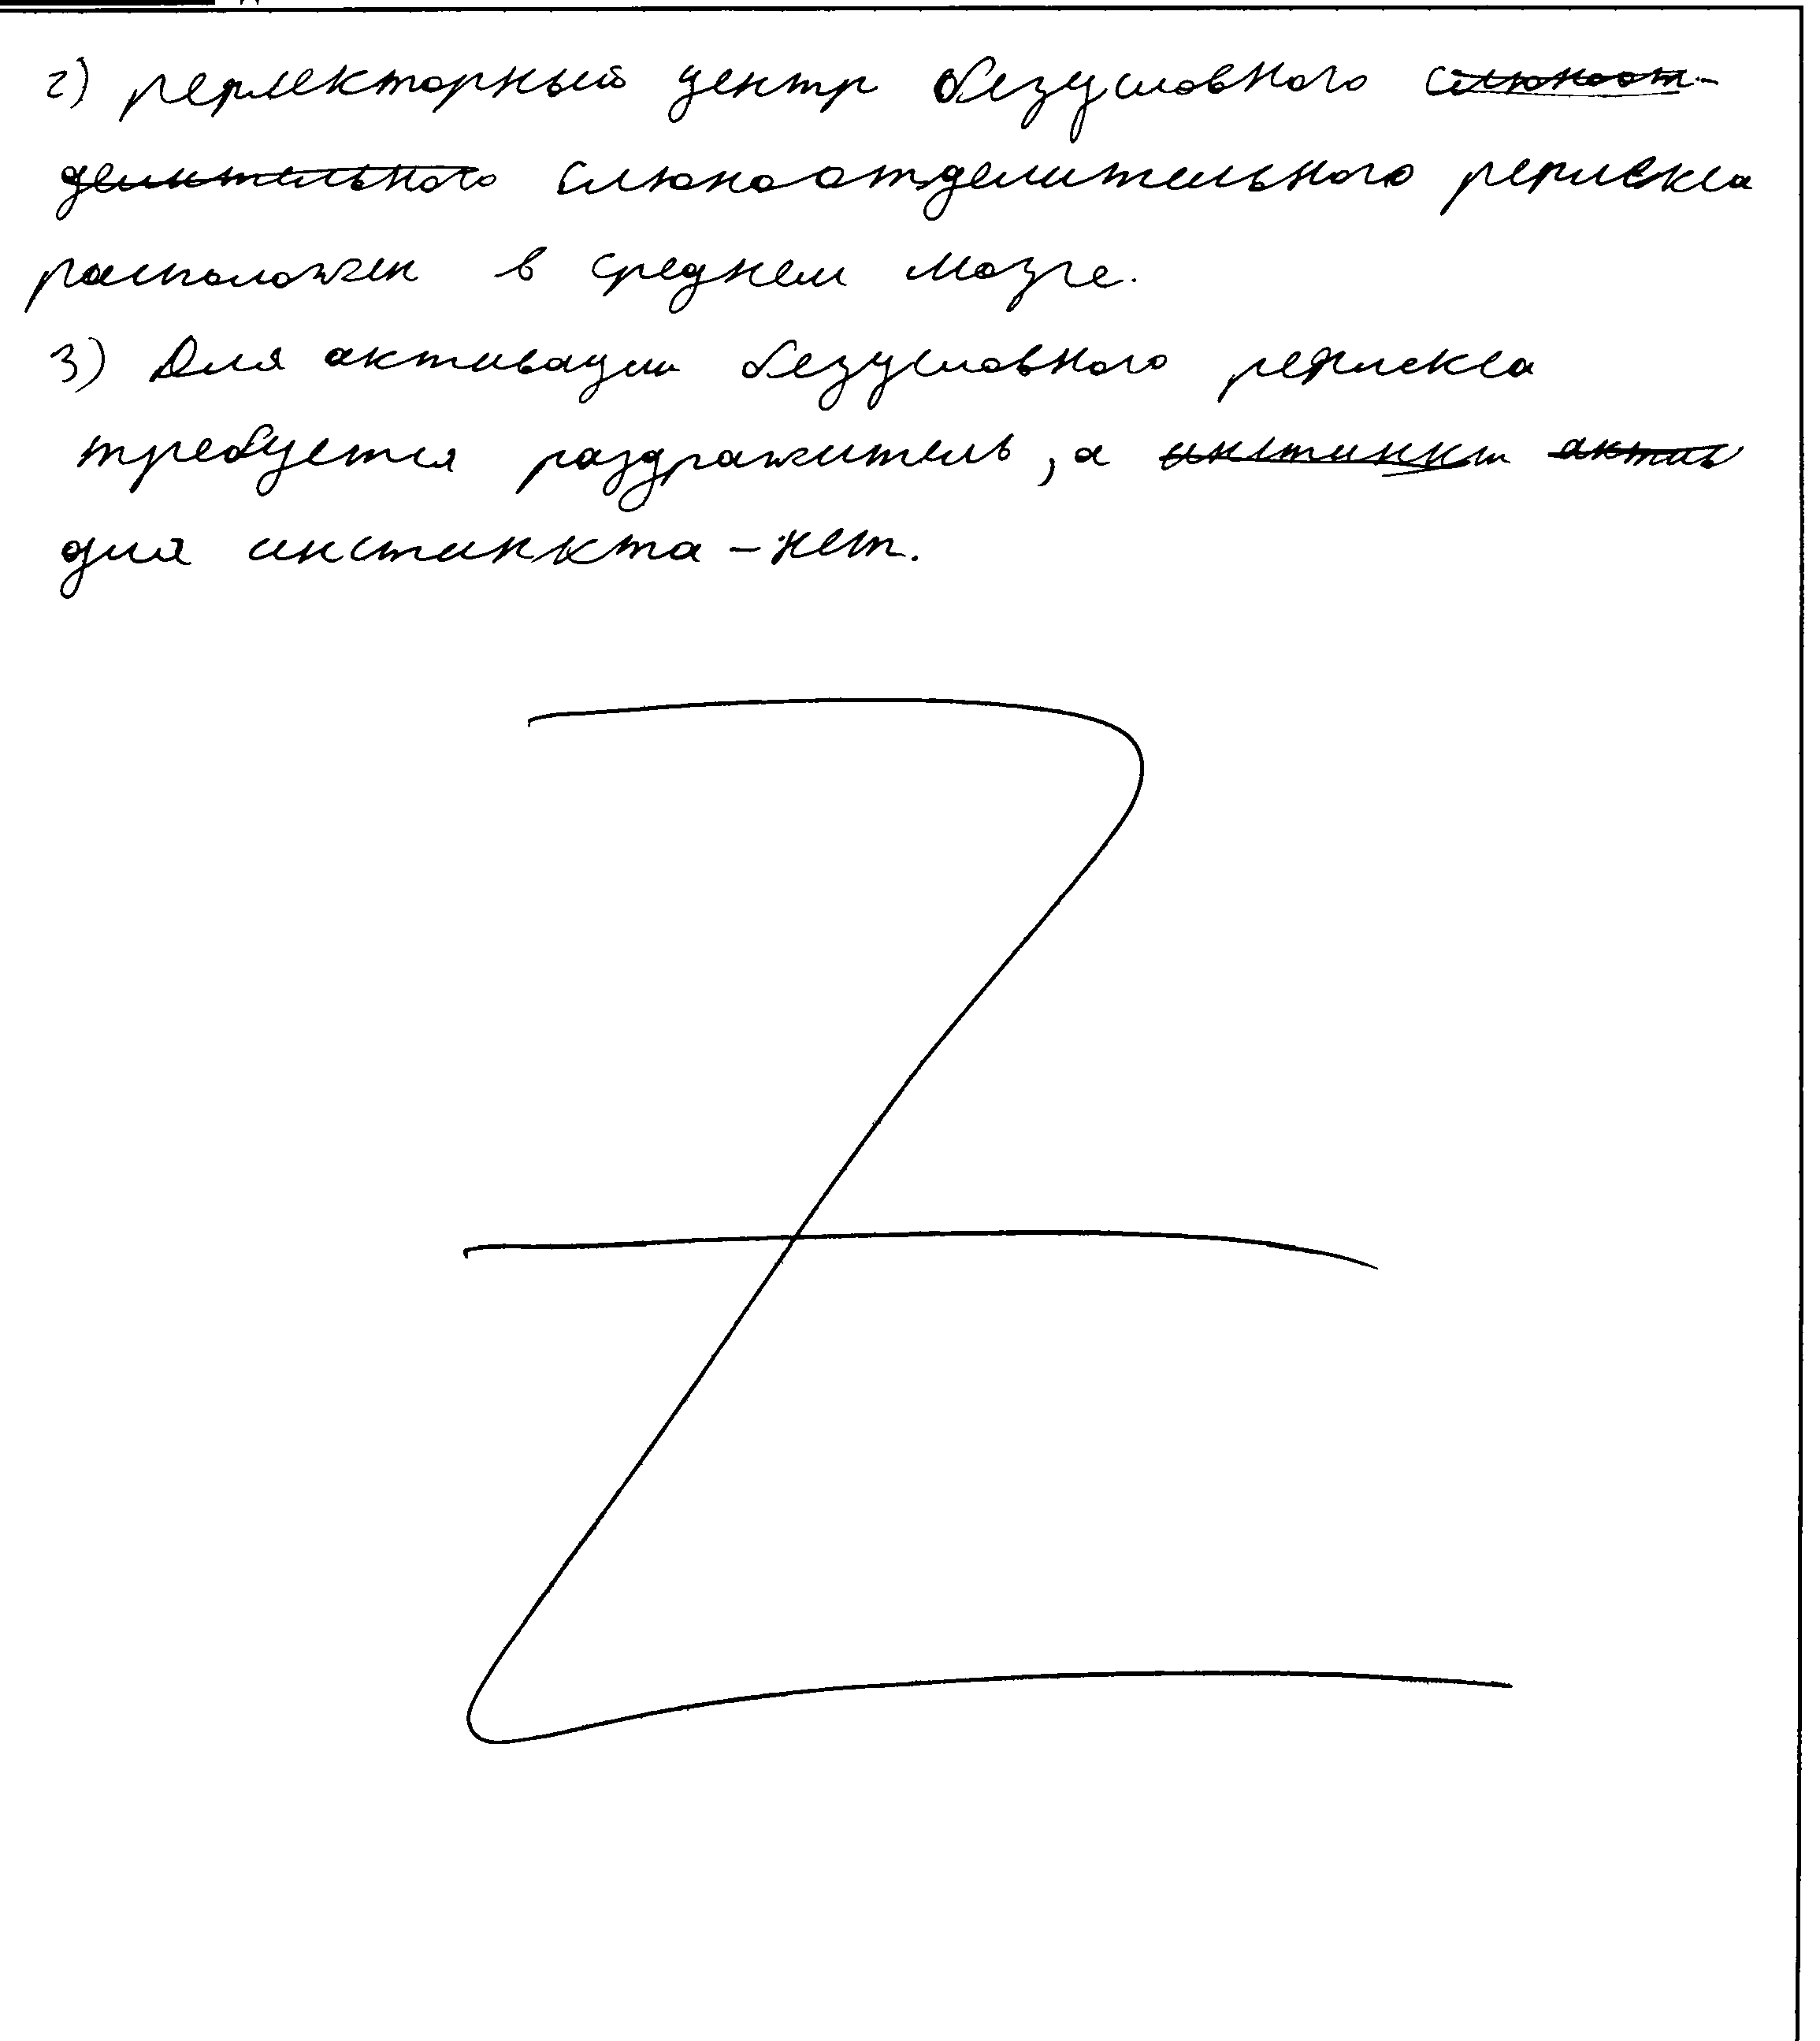 2) рефлекторный центр безусловного слюноот-
делительного слюноотделительного рефлекса
расположен в среднем мозге.
3) Для активации безусловного рефлекса
требуется раздражитель, а инстинкт актив
для инстинкта - нет.